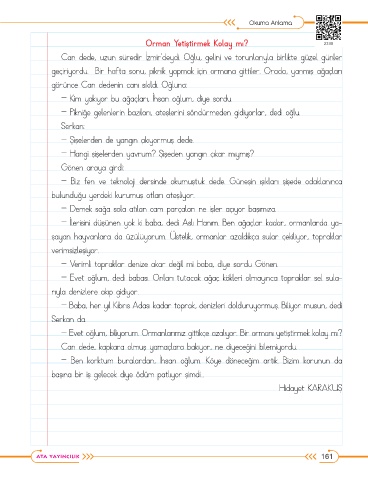 Okuma Anlama
2238
Orman Yetiştirmek Kolay mı?
Can dede, uzun süredir İzmir'deydi. Oğlu, gelini ve torunlarıyla birlikte güzel günler
geçiriyordu. Bir hafta sonu, piknik yapmak için ormana gittiler. Orada, yanmış ağaçları
görünce Can dedenin canı sıkıldı. Oğluna:
– Kim yakıyor bu ağaçları, İhsan oğlum, diye sordu.
– Pikniğe gelenlerin bazıları, ateşlerini söndürmeden gidiyorlar, dedi oğlu.
Serkan:
– Şişelerden de yangın çıkıyormuş dede.
– Hangi şişelerden yavrum? Şişeden yangın çıkar mıymış?
Gönen araya girdi:
– Biz fen ve teknoloji dersinde okumuştuk dede. Güneşin ışıkları şişede odaklanınca
bulunduğu yerdeki kurumuş otları ateşliyor.
– Demek sağa sola atılan cam parçaları ne işler açıyor başımıza.
– İlerisini düşünen yok ki baba, dedi Aslı Hanım. Ben ağaçlar kadar, ormanlarda ya-
şayan hayvanlara da üzülüyorum. Üstelik, ormanlar azaldıkça sular çekiliyor, topraklar
verimsizleşiyor.
– Verimli topraklar denize akar değil mi baba, diye sordu Gönen.
– Evet oğlum, dedi babası. Onları tutacak ağaç kökleri olmayınca topraklar sel sula-
rıyla denizlere akıp gidiyor.
– Baba, her yıl Kıbrıs Adası kadar toprak, denizleri dolduruyormuş. Biliyor musun, dedi
Serkan da.
– Evet oğlum, biliyorum. Ormanlarımız gittikçe azalıyor. Bir ormanı yetiştirmek kolay mı?
Can dede, kapkara olmuş yamaçlara bakıyor, ne diyeceğini bilemiyordu.
– Ben korktum buralardan, İhsan oğlum. Köye döneceğim artık. Bizim korunun da
başına bir iş gelecek diye ödüm patlıyor şimdi...
Hidayet KARAKUŞ
ATA YAYINCILIK
161